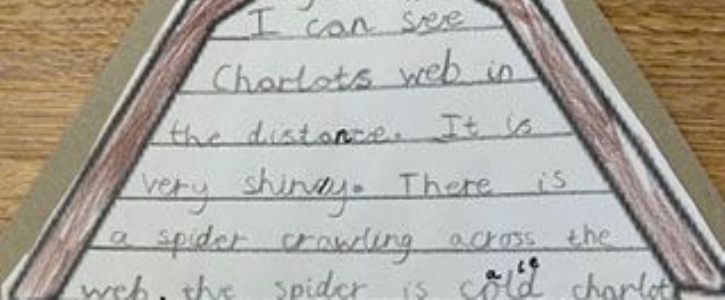 I can see
Charlots web in
the distance. It is
very shiny. There is
a spider crawling across the
web. the spider is charlot